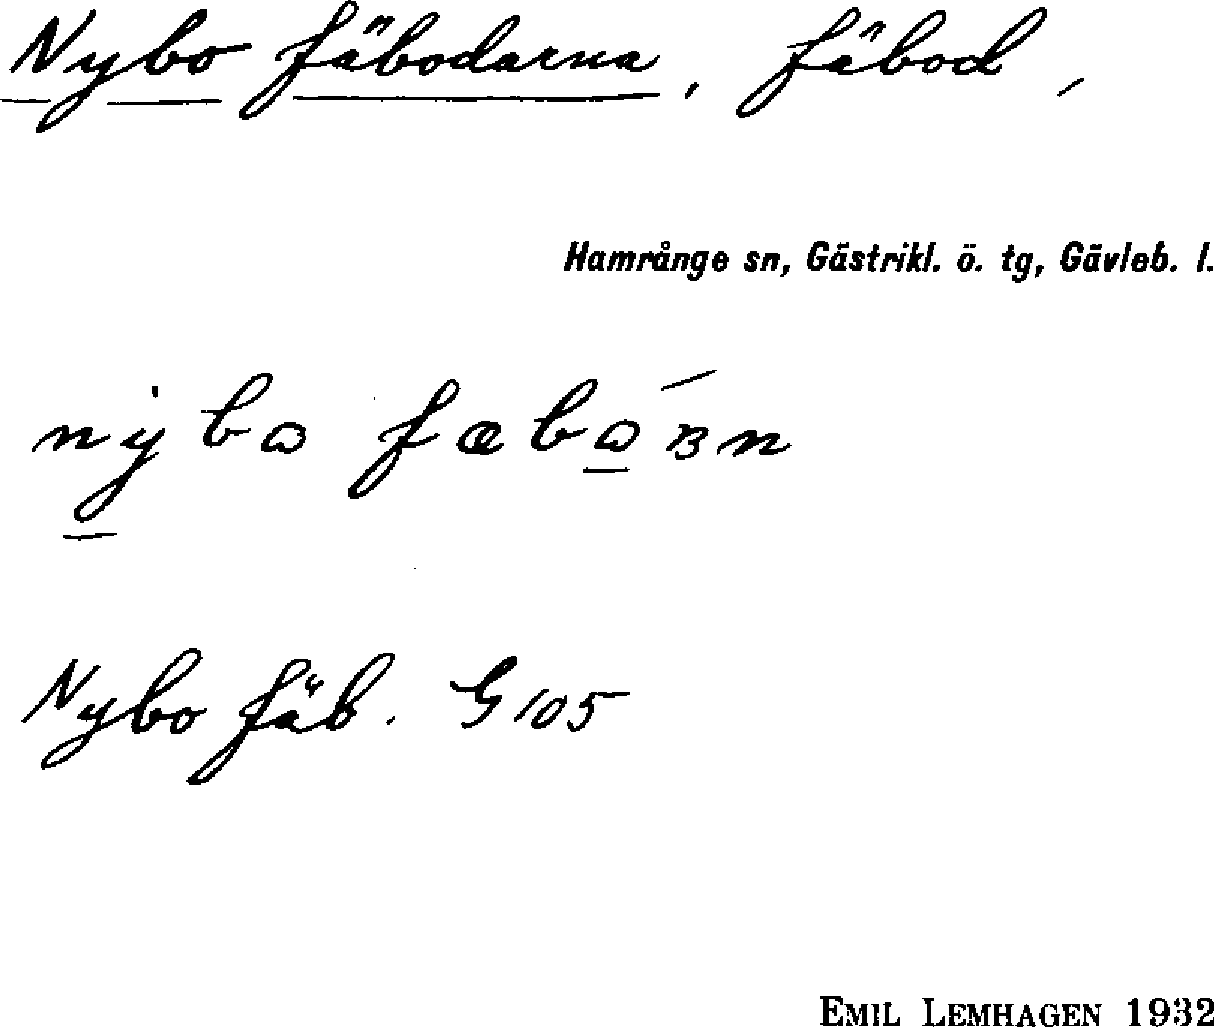 Nybo fäbodarna, fäbod,
Hamrånge sn, Gästrikl. ö. tg, Gävleb. l.
Nybo fäb. G 105
EMIL LEMHAGEN 1932